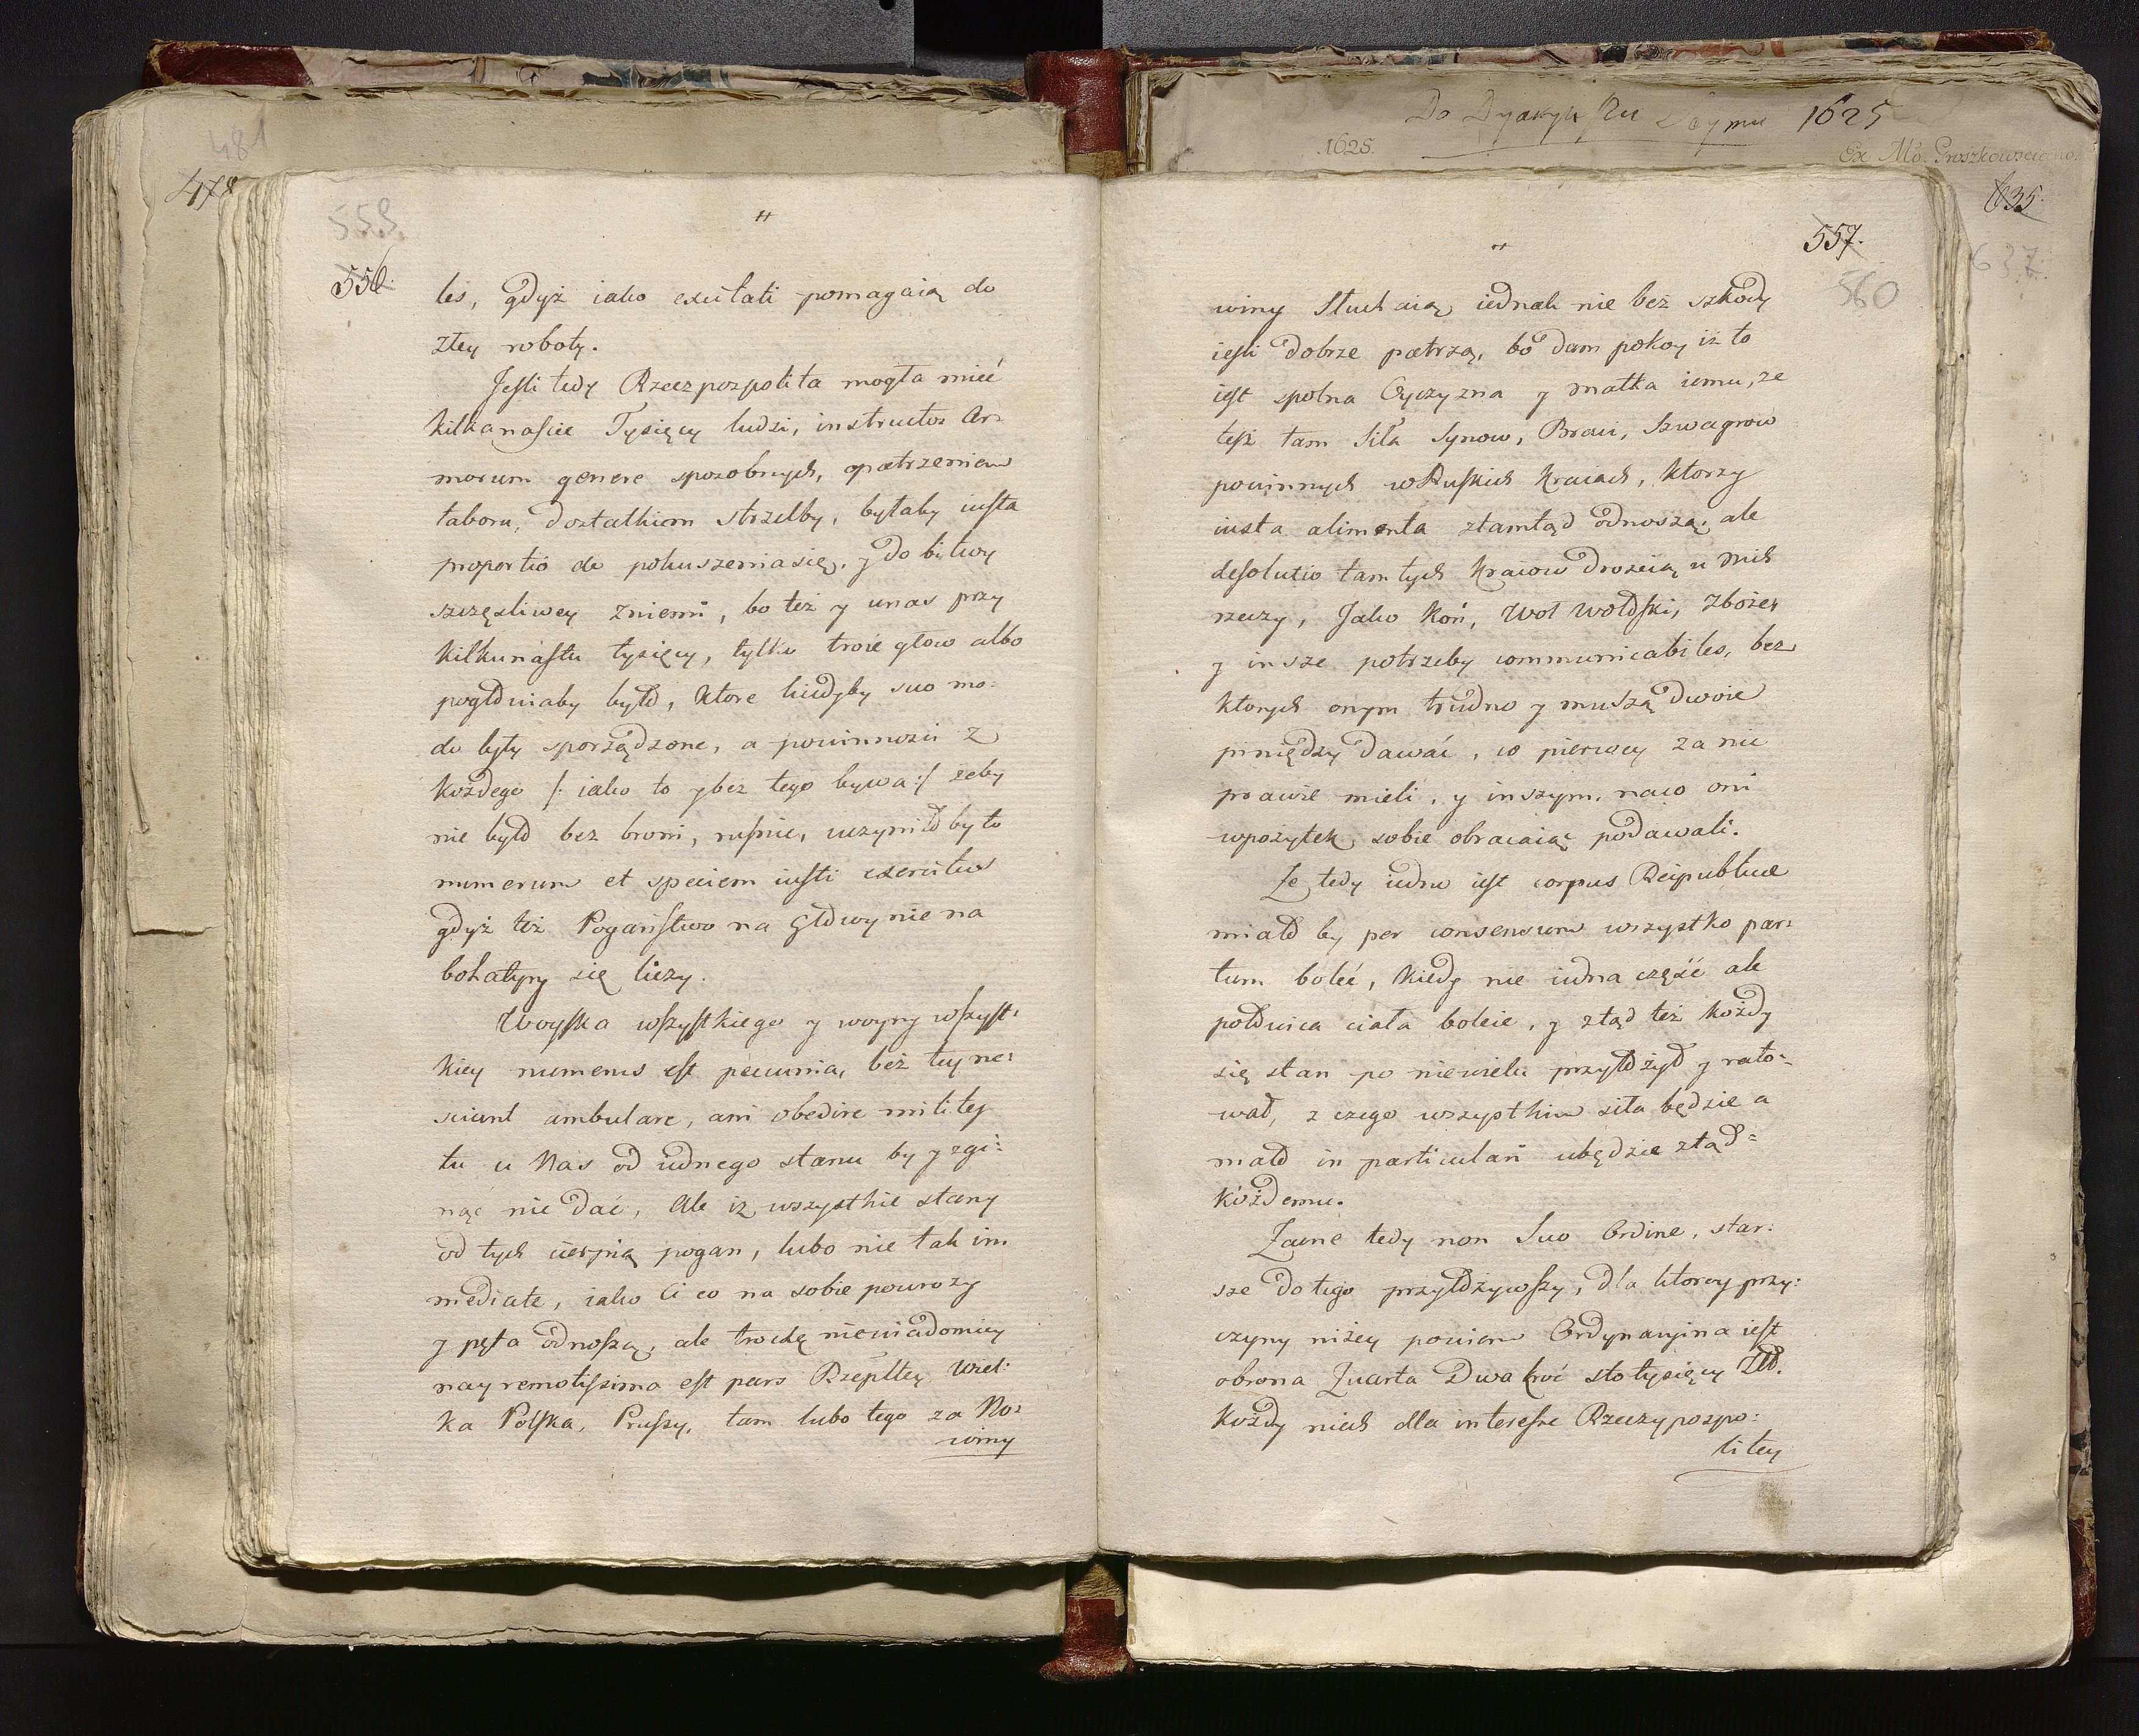 481
478
559
556.
leś, gdyż iako exultati pomagaią do
złey roboty.
Jesli tedy Rzeczpozpolita mogła mieć
kilkanaście Tysięcy ludzi, instructos Ar-
morum genere sposobnych, opatrzeniem
taboru, dostatkiem strzelby, byłaby iusta
proportio do pokuszenia się, y do bitwy
szczęsliwey zniemi, bo też y unas przy
kilkunastu tysięcy, tylko troie głow albo
pogłowiaby było, ktore kiedyby suo mo-
do były sporządzone, a powinnosci z
kożdego /: iako to y bez tego bywa :/ żeby
nie było bez broni, rusnic, uczyniło by to
numerum et speciem iusti exercitus
gdyż też Pogaństwo na głowy nie na
bohatyry się liczy.
Woyska wszystkiego y woyny wszyst-
kiey numerus est pecunia, bez tey ne-
sciunt ambulare, ani obedire milites
tu u Nas od iednego stanu by y zgi-
nąć nie dać, Ale iż wszystkie stany
od tych cierpią pogan, lubo nie tak im-
mediate, iako Ci co na sobie powrozy
y pęta odnoszą, ale trochę niewiadomiey
nay remotissima est pars Rzeplłey Wiel-
ka Polska, Prussy, tam lubo tego za No-
winy
Do Dyaryu Szu Seymu 1625
1625.
Ex Mo. Proszkowsciano.
635.
637.
557.
560
winy Słuchaią iednak nie bez szkody
iesli dobrze patrzą, bo dam pokoy iż to
iest spolna Oyczyzna y matka iemu, że
też tam siła Synow, Braci, Szwagrow
powinnych w Ruskich kraiach, ktorzy
iusta alimenta ztamtąd odnoszą, ale
desolutio tamtych kraiow drożcią u nich
rzeczy, Jako Koń, Woł Wołoski, Zboże,
y insze potrzeby communicabiles, bez
ktorych onym trudno y muszą dwoie
piniędzy dawać, co pierwey za nic
prawie mieli, y inszym, naco oni
wpożytek sobie obracaiąc podawali.
Ze tedy iedno iest corpus Reipublicae
miało by per consensum wszystko par-
tum boleć, kiedy nie iedna część ale
połowica ciała boleie, y ztąd też kożdy
się stan po niewielu przyłożył y rato-
wał, z czego wszystkim siła będzie a
mało in particulari ubędzie ztąd-
kożdemu.
Zacne tedy non Suo Ordine, star-
sze do tego przyłożywszy, dla ktorey przy-
czyny niżey powiem Ordynaryina iest
obrona Zuarta Dwakroć stotysięcy Zło.
Kożdy niech dla interesse Rzeczypospo-
litey